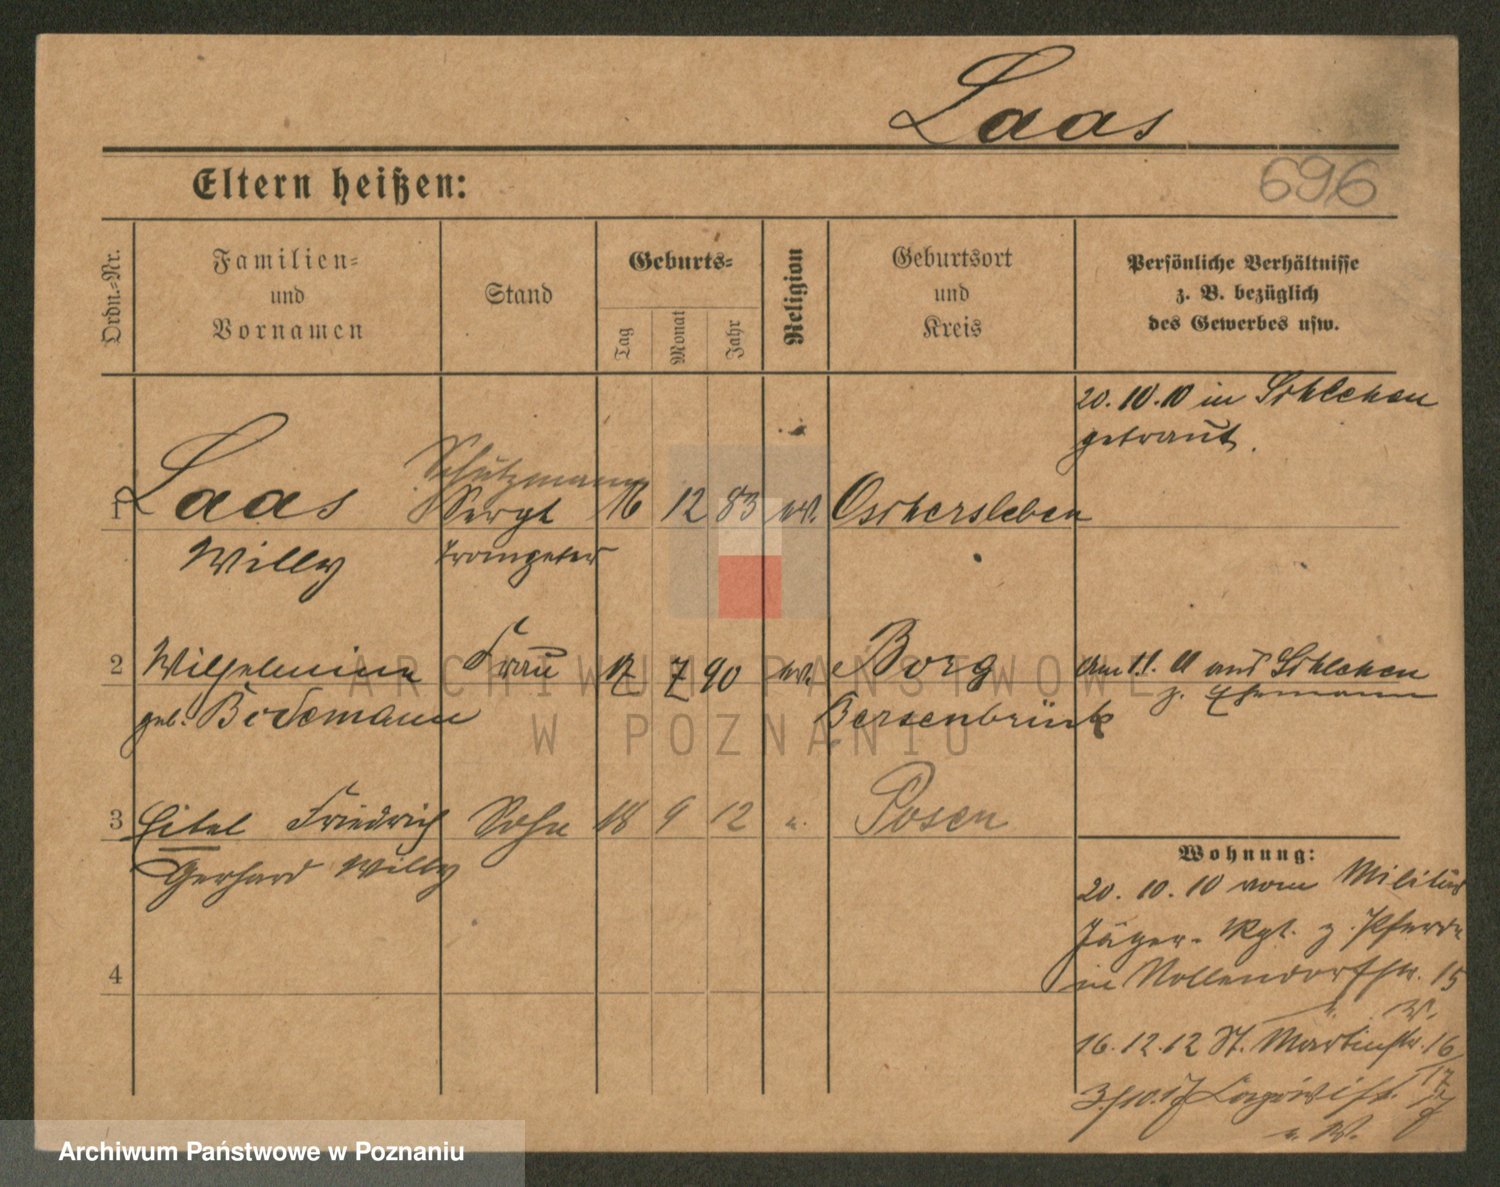 Laas
Eltern heißen:
696
Ordn.-Nr.
Familien- und Vornamen
Stand
Geburts-
Tag
Monat
Jahr
Religion
Geburtsort und Kreis
Persönliche Verhältnisse z. B. bezüglich des Gewerbes usw.
20. 10. 10 in Schlehen
getraut.
Schutzmann
1 Laas Sergt 16 12 83 ev. Oschersleben
Willy Trompeter
2 Wilhelmine Frau 12 7 90 ev. Borg
am 11. 11 aus Schlehen
z. Ehemann
geb. Bodemann Bersenbrück
3 Eitel Friedrich Sohn 18 9 12 e. Posen
Gerhard Willy
4
Wohnung:
20. 10. 10 vom Militär
Jäger- Rgt. z. Pferde
in Nollendorfstr. 15
16. 12. 12 St. Martinstr. 16/17
u. W.
ARCHIWUM PAŃSTWOWE
W POZNANIU
Archiwum Państwowe w Poznaniu